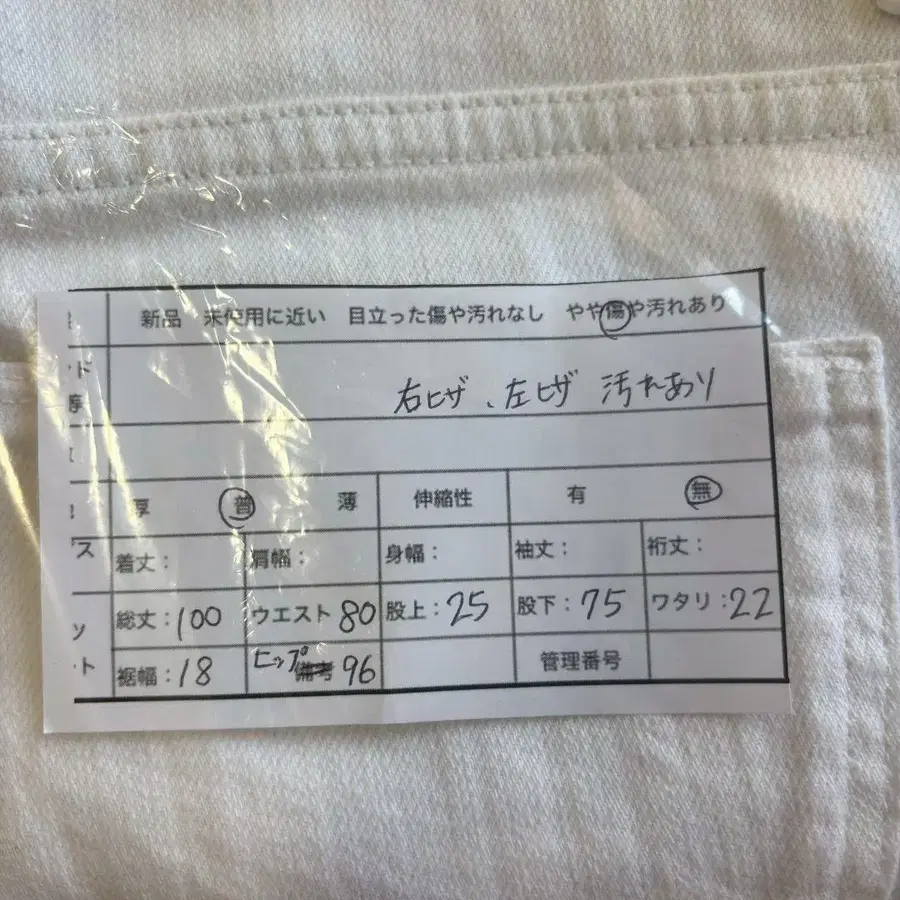 新品 未使用に近い 目立った傷や汚れなし やや傷や汚れあり
ド
右ヒザ、左ヒザ 汚れあり
厚 普 薄 伸縮性 有 無
ス 着丈： 肩幅： 身幅： 袖丈： 裄丈：
ツ 総丈：100 ウエスト 80 股上：25 股下：75 ワタリ：22
ト 裾幅：18 ヒップ 備考 96 管理番号